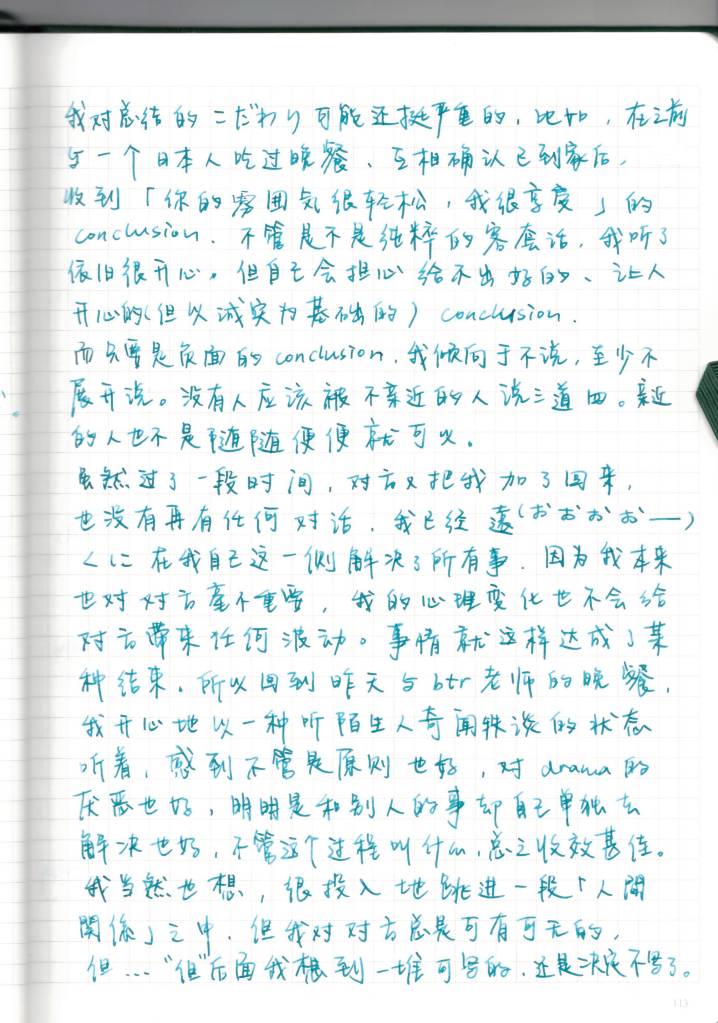 我对总结的こだわり可能还挺严重的，比如，在之前
与一个日本人吃过晚餐、互相确认已到家后，
收到「你的雰囲気很轻松，我很享受」的
conclusion．不管是不是纯粹的客套话，我听了
依旧很开心。但自己会担心给不出好的、让人
开心的（但以诚实为基础的）conclusion．
而只要是负面的conclusion，我倾向于不说，至少不
展开说。没有人应该被不亲近的人说三道四。亲近
的人也不是随随便便就可以。
虽然过了一段时间，对方又把我加了回来，
也没有再有任何对话．我已经遠(おおおおー)
くに在我自己这一侧解决了所有事．因为我本来
也对对方毫不重要，我的心理变化也不会给
对方带来任何波动。事情就这样达成了某
种结束．所以回到昨天与btr老师的晚餐，
我开心地以一种听陌生人奇闻轶谈的状态
听着，感到不管是原则也好，对drama的
厌恶也好，明明是和别人的事却自己单独去
解决也好，不管这个过程叫什么，总之收效甚佳。
我当然也想，很投入地跳进一段「人間
関係」之中．但我对对方总是可有可无的，
但…“但”后面我想到一堆可写的，还是决定不写了。
113